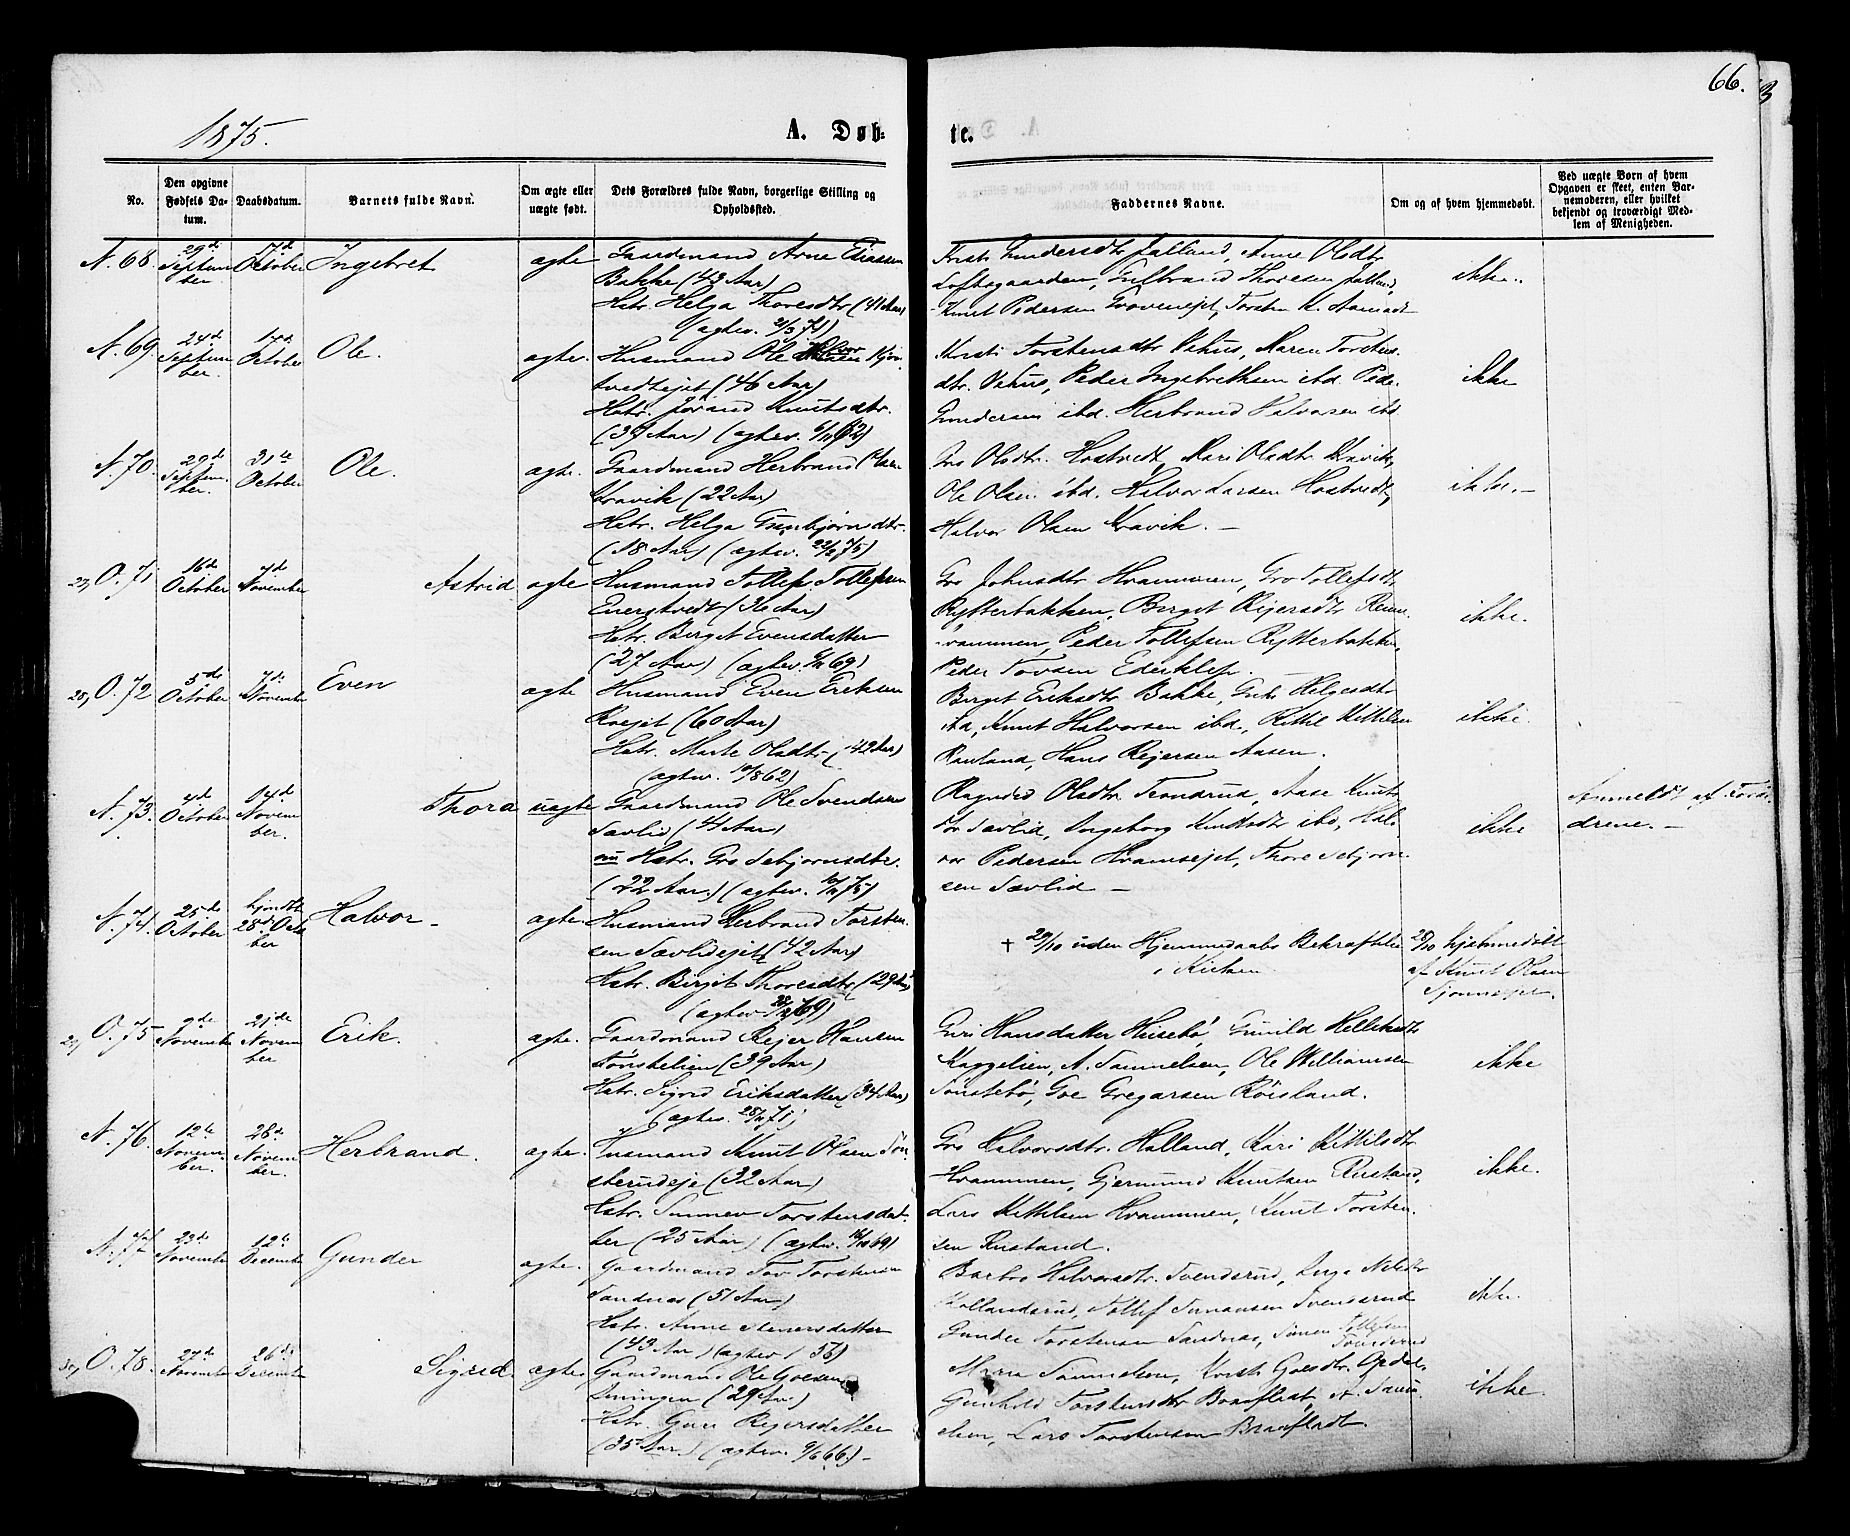 66.
1875.
A. Døb-
te.
No.
Den opgivne Fødsels Da-
tum.
Daabsdatum.
Barnets fulde Navn.
Om ægte eller
uægte født.
Dets Forældres fulde Navn, borgerlige Stilling og
Opholdsted.
Faddernes Navne.
Om og af hvem hjemmedøbt.
Ved uægte Børn af hvem
Opgaven er skeet, enten Bar-
nemoderen, eller hvilket
bekjendt og troværdigt Med-
lem af Menigheden.
N. 68.
29de
Septem
ber
17de
October
Ingebret
ægte
Gaardmand Arne Eliassen
Bakke (43 Aar)
Hstr. Helga Thoresdtr (41 Aar)
(ægtev. 2/3 71)
Gundersdtr Jalland, Anne Olsdtr
Loftsgaarden, Gulbrand Thoresen Jalland,
Knut Pedersen Torsten K.
ikke.
N. 69.
24de
Septem
ber.
17de
October
Ole.
ægte.
Husmand Ole
tvedtejet (46 Aar)
Hstr. Jørand Knutsdtr.
(37 Aar) (ægtev. 6/11 62)
Kristi Torstensdtr Vehus, Maren Torstens.
dtr. Vehus, Peder Ingebrethsen ibd. Peder
Gundersen ibd. Herbrand Halvorsen ibd.
ikke
N. 70.
29de
Septem.
ber.
31te
October
Ole.
ægte.
Gaardmand Herbrand Olsen
Kravik (22 Aar)
Hstr. Helga Gunbjørnsdtr.
(18 Aar) (ægtev. 22/2 75)
Gro Olsdtr. Hostvedt, Mari Olsdtr. Kravik,
Ole Olsen ibd. Halvor Larsen Hostvedt,
Halvor Olsen Kravik. —
ikke. —
O. 71
16de
October
7de
November
Astrid
ægte
Husmand Tollef Tollefsen
Evergtvedt (36 Aar)
Hstr. Birget Evensdatter
(27 Aar) (ægtev. 69)
Gro Johnsdtr Hrammen, Gro Tollefsdtr
Rytterbakken, Birget Rejersdtr
Peder Tollefsen Rytterbakken,
Peder Torsen
ikke.
O. 72
5de
October
7de
November
Even
ægte
Husmand Even Eriksen
(60 Aar)
Hstr. Marte Olsdtr (42 Aar)
(ægtev. 10/8 62)
Birget Eriksdtr Bakke, Helgesdtr
ibd, Knut Halvorsen ibd, Kittil Kittilsen
Rauland, Hans Rejersen Aasen.
ikke.
N. 73.
4de
October
14de
Novem
ber.
Thora
uægte
Gaardmand Ole Svendsen
Sævlid (41 Aar)
nu Hstr. Gro Sebjørnsdtr.
(22 Aar.) (ægtev. 75)
Ragnild Olsdtr Trondrud, Aase Knuts
dtr Sævlid, Ingeborg Knutsdtr ibd, Hal.
vor Pedersen Hramsejet, Thore Sebjørn.
sen Sævlid —
ikke
Anmeldt af Foræl.
drene. —
N. 74.
25de
October
28de Octo
ber
Halvor —
ægte.
Husmand Herbrand Torsten.
sen Sævlidejet (42 Aar)
Hstr. Birgit Thoresdtr (29 Aar)
(ægtev 28/12 69)
† 29/10 uden Hjemmedaabs Bekræftelse
i Kirken
28/10 hjemmedøbt
af Knut Olsen
O. 75
9de
November
21de
Novem
ber
Erik.
ægte.
Gaardmand Rejer Hansen
Tønskelien (39 Aar)
Hstr. Sigrid Eriksdatter (34 Aar)
(ægtev. 71)
Guri Hansdatter Husebø, Gunild Hellikdtr
Kaggelien, A. Samuelsen, Ole Williamsen
Tønstebø, Goe Gregarsen Røisland.
ikke
N. 76.
12te
Novem
ber.
28de
Novem
ber.
Herbrand.
ægte.
Husmand Knut Olsen Søn.
sterudeje (32 Aar)
Hstr. Sunnev Torstensdat.
ter (25 Aar) (ægtev. 69)
Gro Halvorsdtr. Halland, Kari Kittilsdtr
Hrammen, Gjermund Knutsen Rustand,
Lars Kittilsen Hrammen, Knut Torsten.
sen Rustand.
ikke.
N. 77
23de
November
12te
December
Gunder
ægte.
Gaardmand Tov Torstensen
Sandnæs (51 Aar)
Hstr. Anne Stenersdatter
(43 Aar) (ægtev 56)
Barbro Halvorsdtr. Svendsrud,
Tollef Svensrud
Gunder Torstensen Sandnæs,
ikke.
O. 78.
27de
November
26de
December
Sigrid
ægte.
Gaardmand Ole Goesen
(29 Aar)
Hstr. Guri Rejersdatter
(35 Aar) (ægtev. 9/6 66) —
Maria Samuelsen, Goesdtr. Opdal.
Gunhild Torstensdtr Braaflat, A. Samu
elsen, Lars Torstensen Braafladt
ikke.